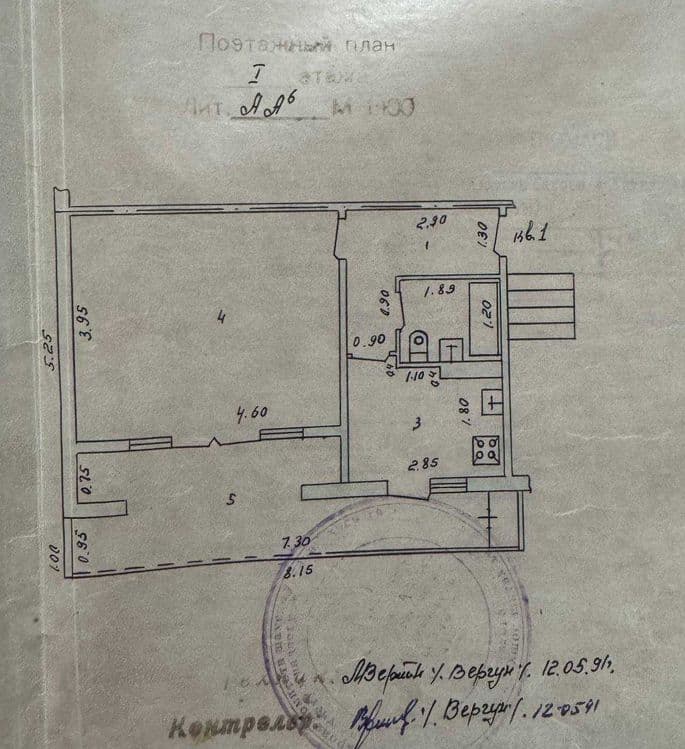 Поэтажный план
I
Лит. АА⁶
2.90
1
1.30
кв.1
1.89
0.90
1.20
3.95
4
5.25
0.90
0.4
1.10
0.4
4.60
3
1.80
2.85
0.75
5
1.00
0.95
7.30
8.15
/. Вергун/. 12.05.91г.
Контролер
/. Вергун/. 12.0591